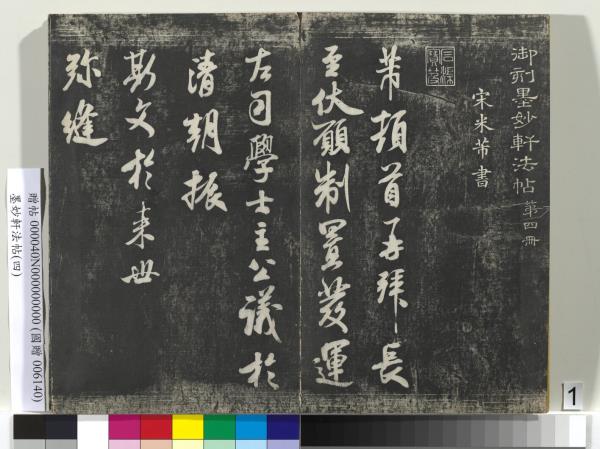 御刻墨妙軒法帖第四冊
宋米芾書
芾頓首再拜長
至伏願制置發運
右司學士主公議於
清朝振
斯文於来世
弥縫
贈帖 000040N000000000 (國贈 006140)
墨妙軒法帖(四)
1